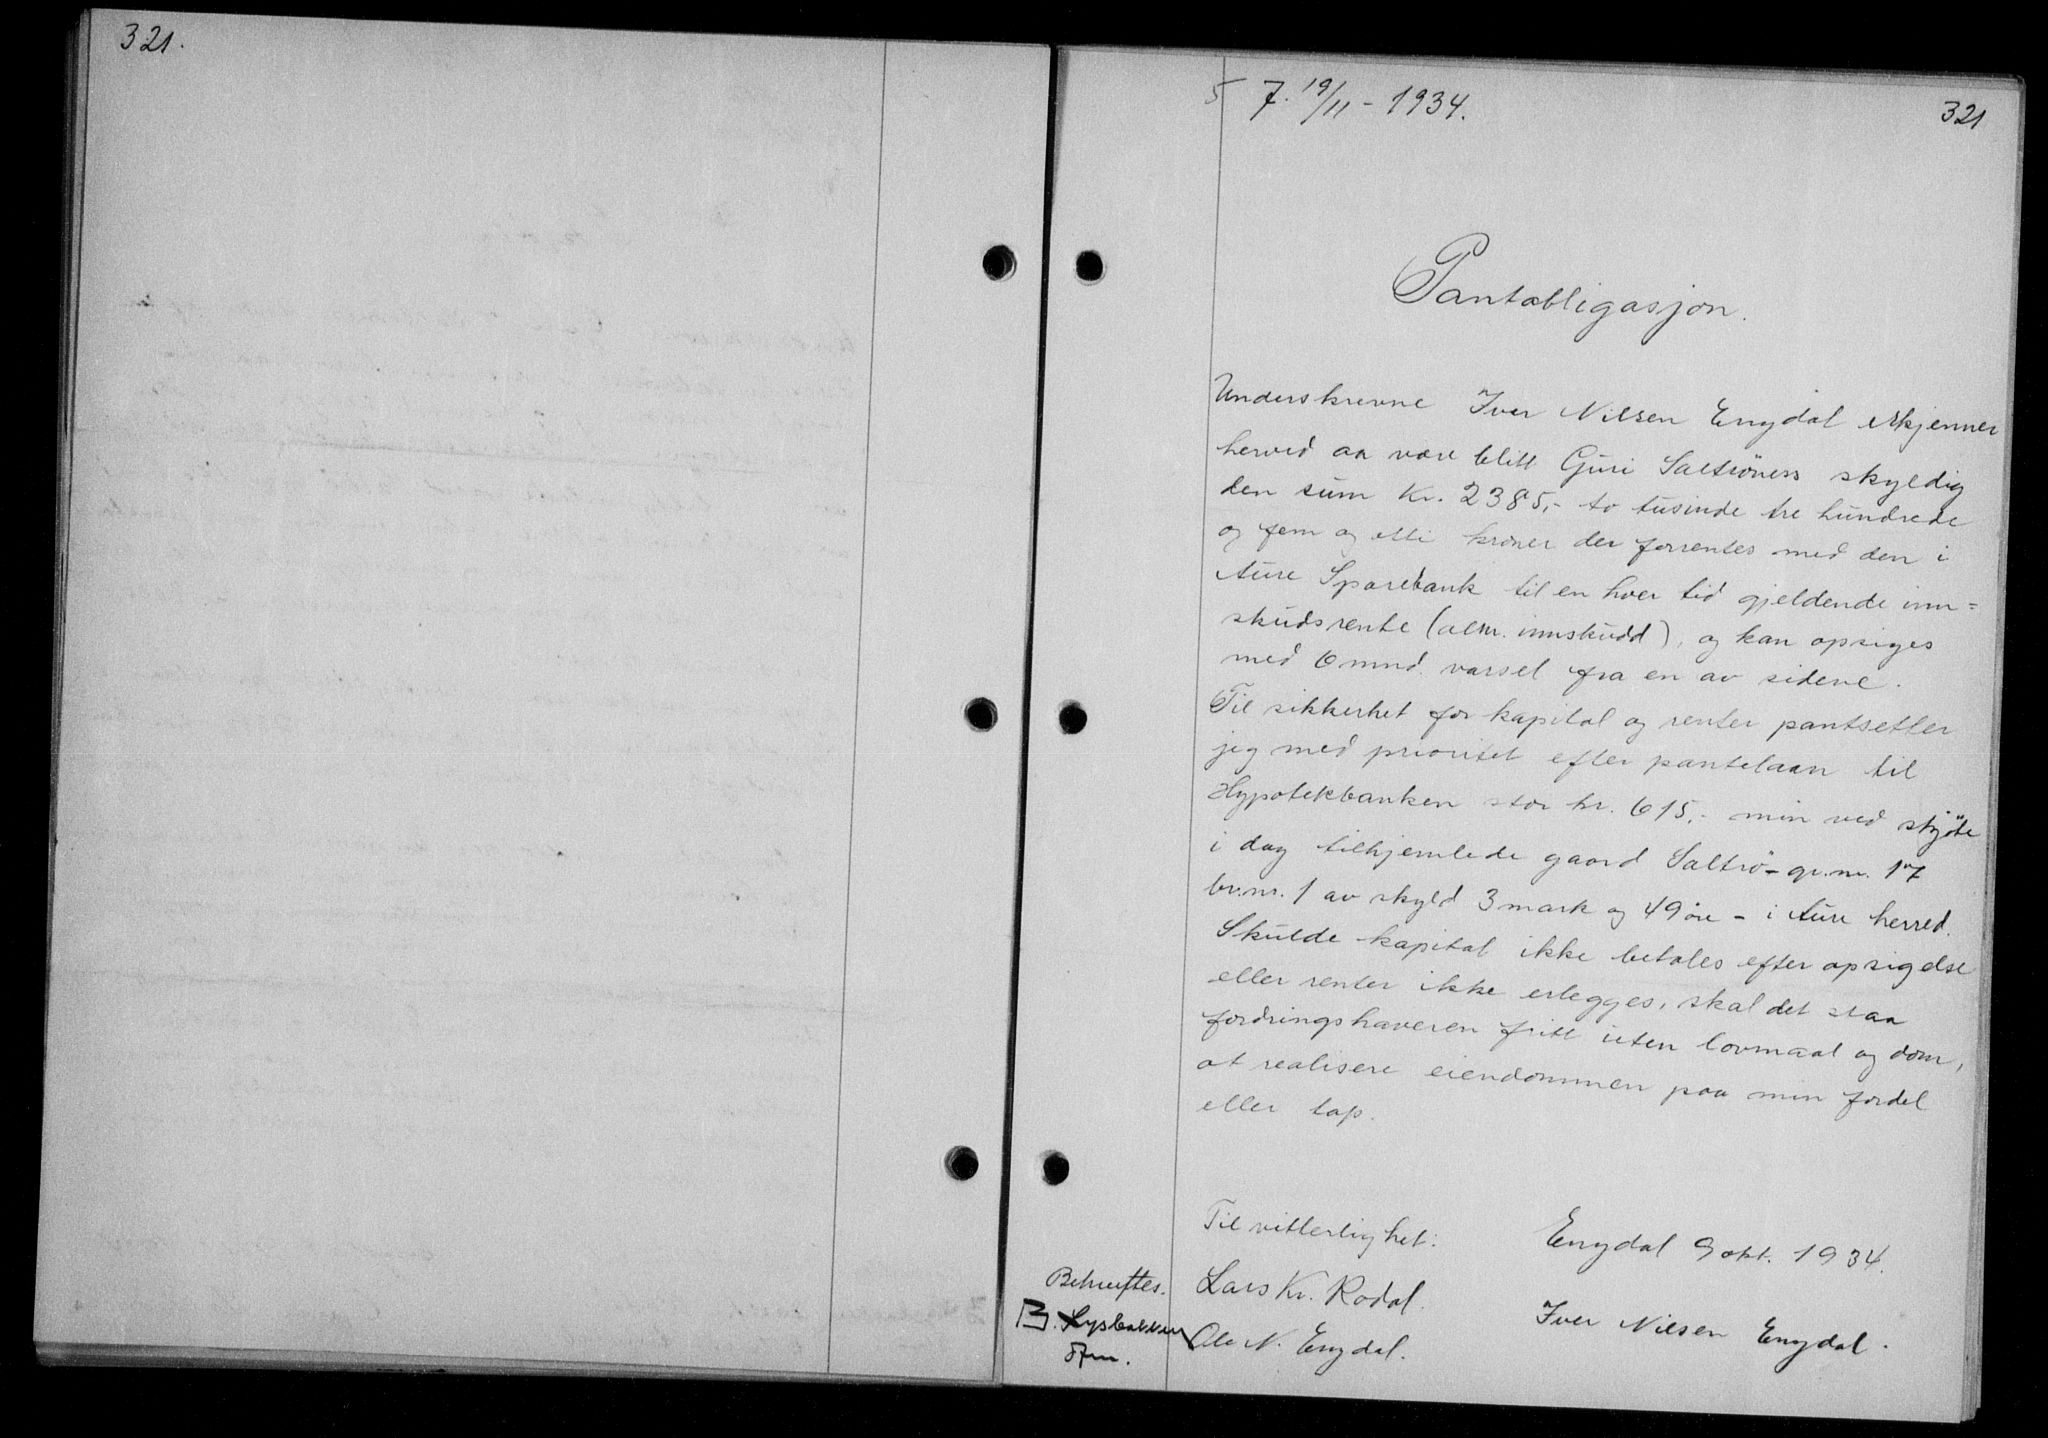 321.
5 7. 19/11 - 1934.
321
Pantobligasjon.
Underskrevne Iver Nilsen Engdal erkjenner
herved aa være blitt Guri Saltrøners skyldig
den sum kr. 2385,- to tusinde tre hundrede
og fem og otti kroner der forrentes med den i
Aure Sparebank til en hver tid gjeldende inn=
skudsrente (alm. innskudd), og kan opsiges
med 6 mnd. varsel fra en av sidene.
Til sikkerhet for kapital og renter pantsetter
jeg med prioritet efter pantelaan til
Hypotekbanken stor kr. 615,- min ved skjöte
i dag tilhjemlede gaard Saltrö - gr.nr. 17
br.nr. 1 av skyld 3 mark og 49 øre - i Aure herred.
Skulde kapital ikke betales efter opsigelse
eller renter ikke erlegges, skal det staa
fordringshaveren fritt uten lovmaal og dom,
at realisere eiendommen paa min fordel
eller tap.
Til vitterlighet:
Engdal 9 okt. 1934.
Lars Kr. Rodal.
Iver Nilsen Engdal.
Ole N. Engdal.
Bekreftes.
B. Lysbakken